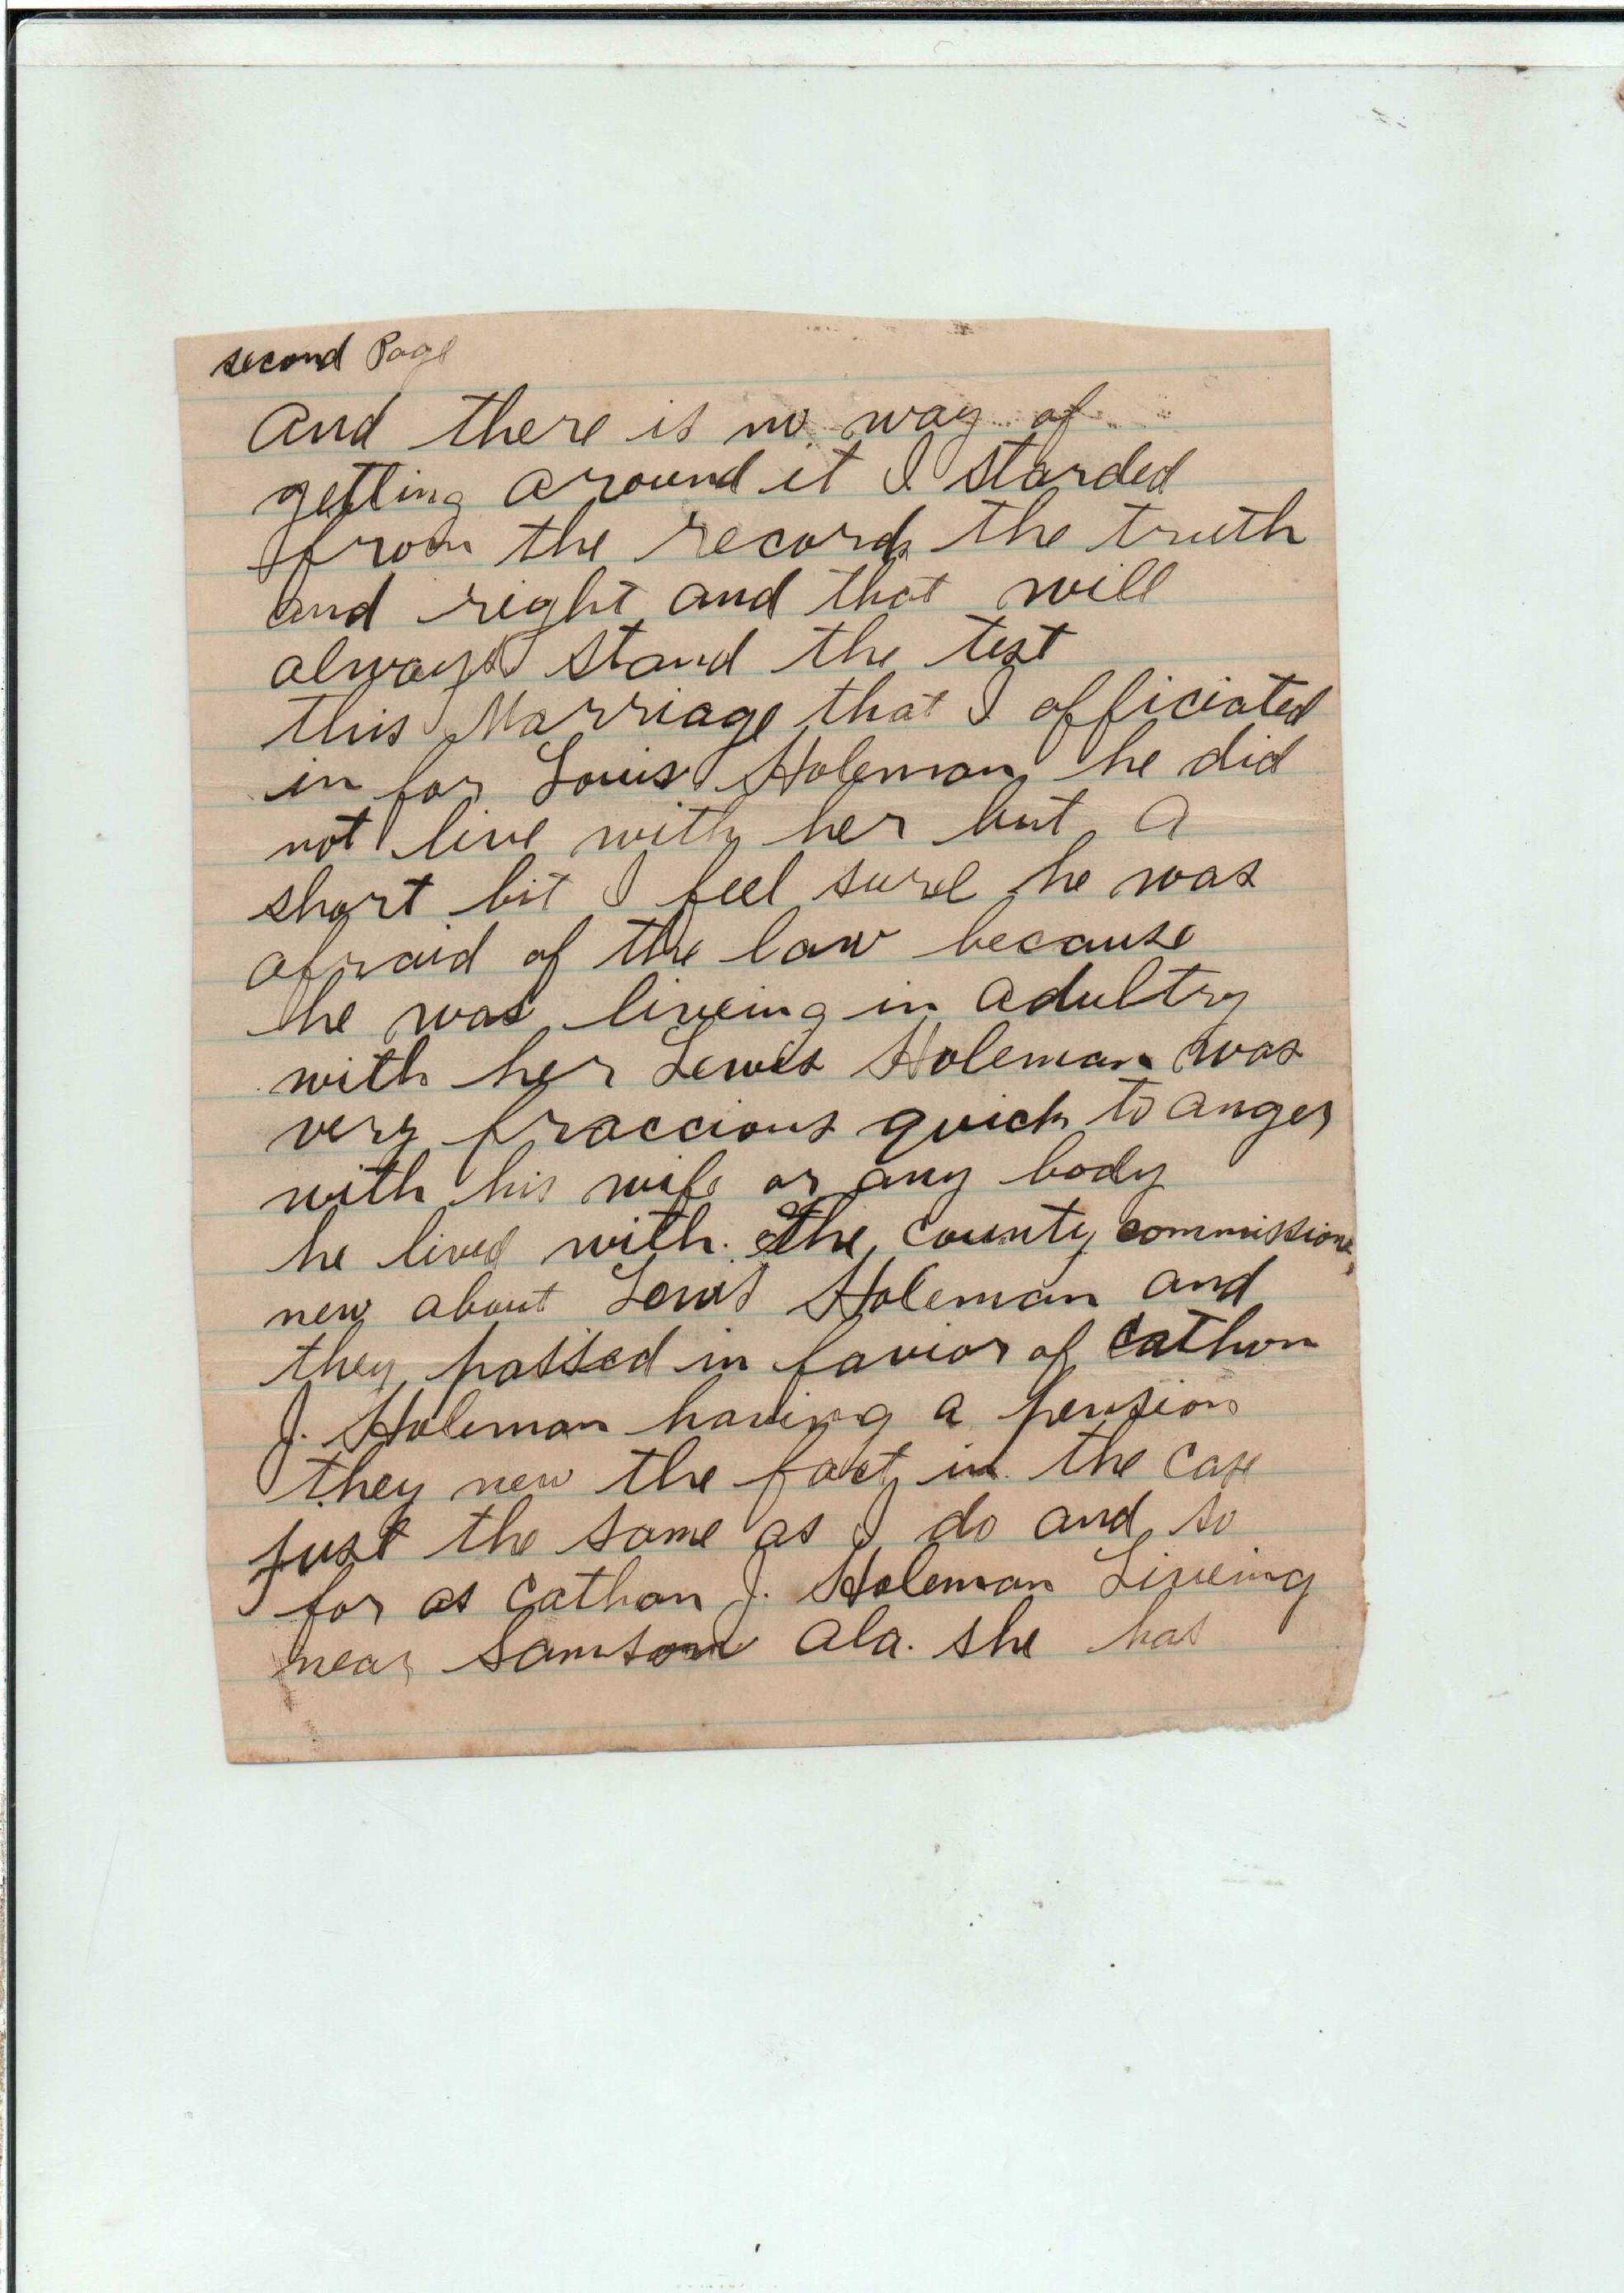 second Page
And there is no way of
getting around it I starded
from the record the truth
and right and that will
always stand the test
this Marriage that I officiated
in for Louis Holeman he did
not live with her but a
short bit I feel surel he was
afraid of the law because
he was liveing in adultry
with her Lewis Holeman was
very fraccious quick to anger
with his wife or any body
he lived with. The county commissione
new about Lewis Holeman and
they passed in favior of Cathon
J. Holeman having a pension
they new the fact in the case
just the same as I do and so
for as Cathan J. Holeman Liveing
near Samson Ala. she has